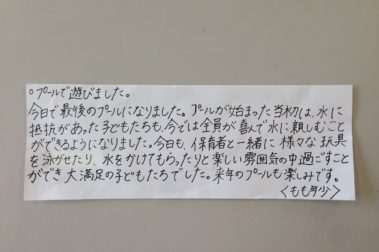 ○プールで遊びました。
今日で最後のプールになりました。プールが始まった当初は、水に
抵抗があった子どもたちも、今では全員が喜んで水に親しむこと
ができるようになりました。今日も、保育者と一緒に様々な玩具
を泳がせたり、水をかけてもらったりと楽しい雰囲気の中過ごすこと
ができ大満足の子どもたちでした。来年のプールも楽しみです。
＜もも